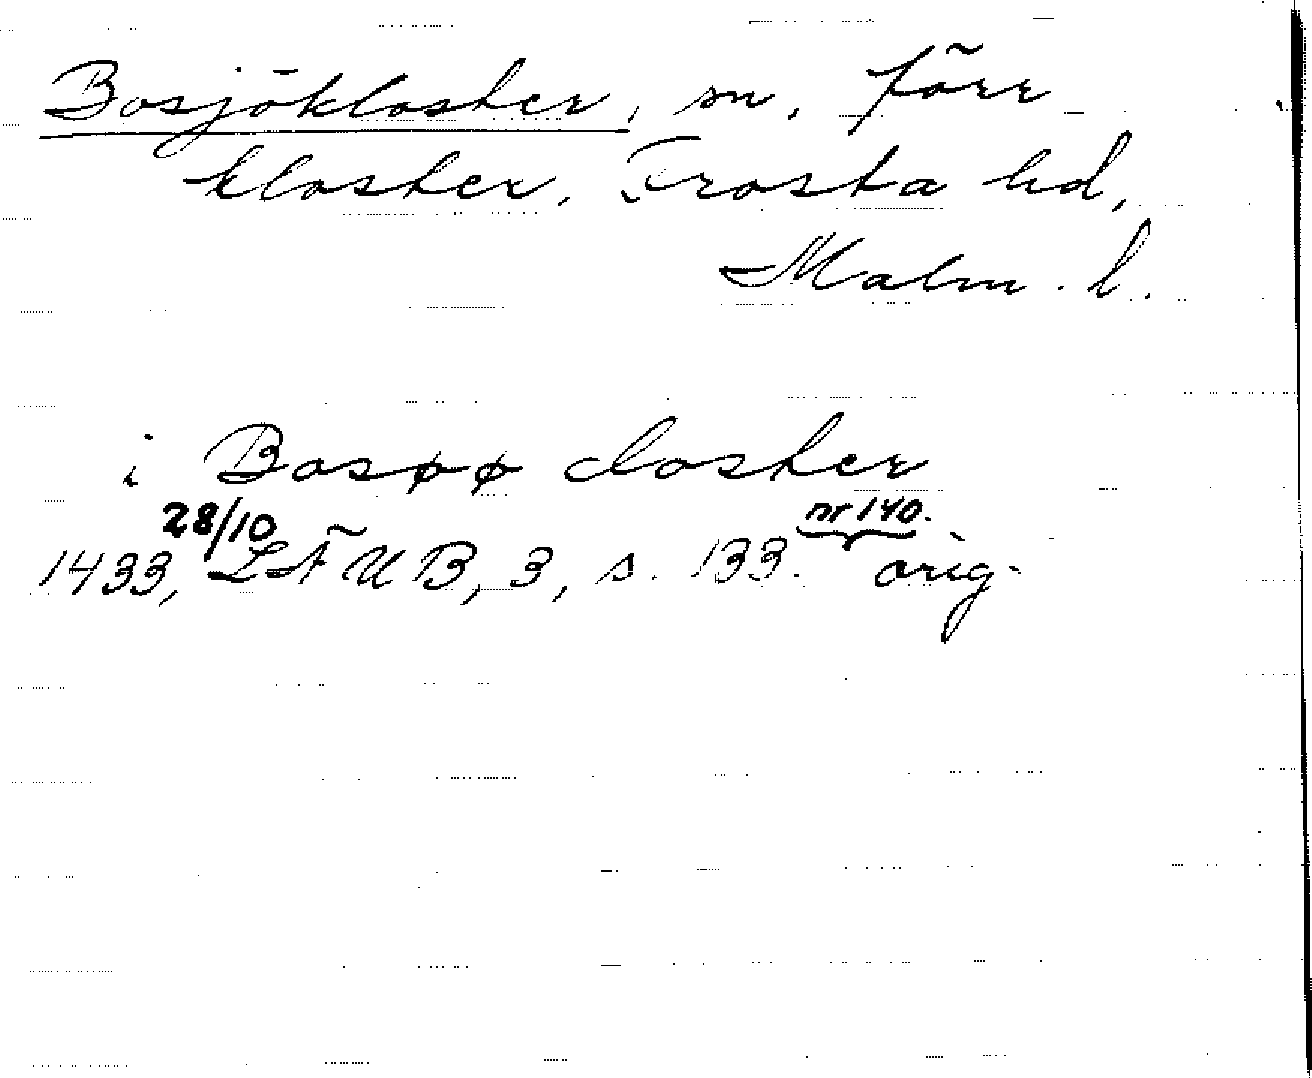 Bosjökloster, sn, förr
kloster. Frosta hd,
Malm. l.
i Bosøø closter
28/10 nr 140.
1433, LÄUB, 3, s. 133. orig.